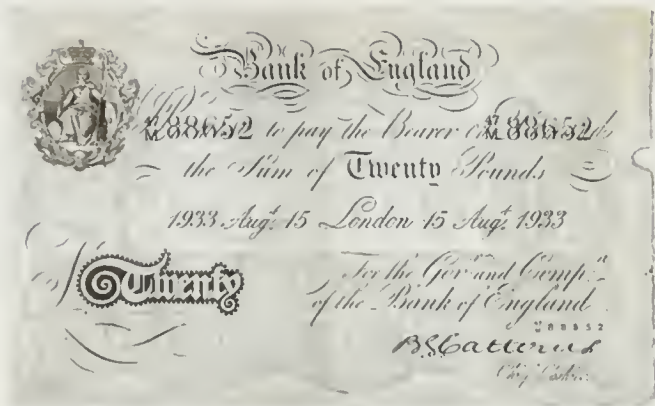 Bank of England
47 M 88652 to pay the Bearer on 47 M 88652
the Sum of Twenty Pounds
1933 Augt. 15 London 15 Augt. 1933
Twenty
For the Govr. and Compa.
of the Bank of England.
88652
B G Catterns
Chief Cashier